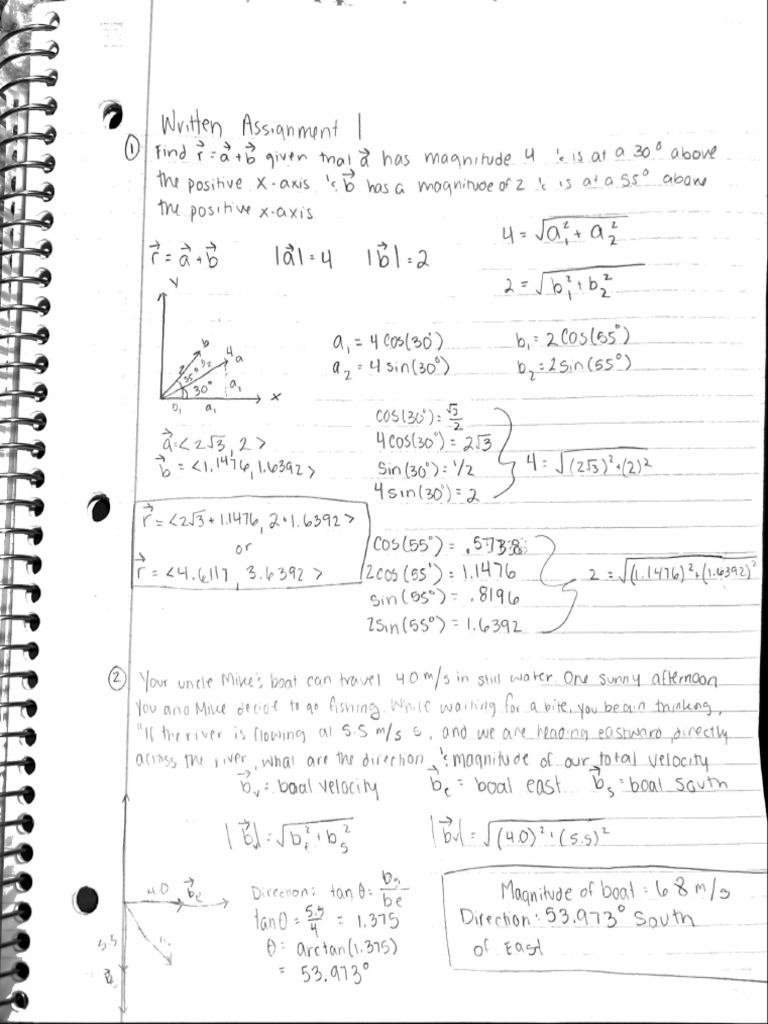 Written Assignment 1
① Find r⃗ = a⃗ + b⃗ given that a⃗ has magnitude 4 & is at a 30° above
the positive x-axis & b⃗ has a magnitude of 2 & is at a 55° above
the positive x-axis
r⃗ = a⃗ + b⃗ |a⃗| = 4 |b⃗| = 2
4 = √(a₁² + a₂²)
2 = √(b₁² + b₂²)
y
b
4
a
2
b₂
30°
a₂
b₁
a₁
x
a₁ = 4cos(30°) b₁ = 2cos(55°)
a₂ = 4sin(30°) b₂ = 2sin(55°)
a⃗ = <2√3, 2>
b⃗ = <1.1476, 1.6392>
cos(30°) = √3/2
4cos(30°) = 2√3
sin(30°) = 1/2
4sin(30°) = 2
4 = √((2√3)² + (2)²)
r⃗ = <2√3 + 1.1476, 2 + 1.6392>
or
r⃗ = <4.6117, 3.6392>
cos(55°) = .5738
2cos(55°) = 1.1476
sin(55°) = .8196
2sin(55°) = 1.6392
2 = √((1.1476)² + (1.6392)²)
② Your uncle Mike's boat can travel 4.0 m/s in still water. One sunny afternoon
you and Mike decide to go fishing. While waiting for a bite, you begin thinking,
"If the river is flowing at 5.5 m/s s, and we are heading eastward, directly
across the river, what are the direction & magnitude of our total velocity
b⃗ᵥ = boat velocity b⃗ₑ = boat east b⃗ₛ = boat south
|b⃗ᵥ| = √(bₑ² + bₛ²) |b⃗ᵥ| = √((4.0)² + (5.5)²)
4.0 b⃗ₑ
5.5
Direction: tanθ = bₛ/bₑ
tanθ = 5.5/4 = 1.375
θ = arctan(1.375)
= 53.973°
Magnitude of boat = 6.8 m/s
Direction: 53.973° South
of East